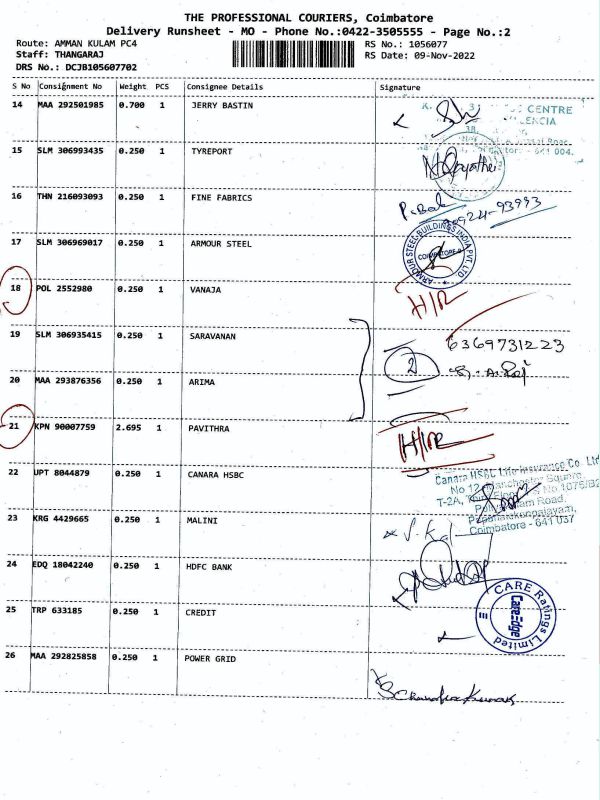 THE PROFESSIONAL COURIERS, Coimbatore
Delivery Runsheet - MO - Phone No.:0422-3505555 - Page No.:2
Route: AMMAN KULAM PC4 RS No.: 1056077
Staff: THANGARAJ RS Date: 09-Nov-2022
DRS No.: DCJB105607702
S No Consignment No Weight PCS Consignee Details Signature
14 MAA 292501985 0.700 1 JERRY BASTIN
CENTRE
15 SLM 306993435 0.250 1 TYREPORT
641 004.
16 THN 216093093 0.250 1 FINE FABRICS
P. Bala
90924-93993
17 SLM 306969017 0.250 1 ARMOUR STEEL
ARMOUR STEEL BUILDINGS INDIA PVT LTD
18 POL 2552980 0.250 1 VANAJA
H/R
19 SLM 306935415 0.250 1 SARAVANAN
6369731223
2
20 MAA 293876356 0.250 1 ARIMA
21 KPN 90007759 2.695 1 PAVITHRA
H/R
22 UPT 8044879 0.250 1 CANARA HSBC
Canara HSBC Life Insurance Co. Ltd
No 12, Manchester Square,
T-2A, No 1075/B2
Road,
Pappanaickenpalayam,
Coimbatore - 641 037
23 KRG 4429665 0.250 1 MALINI
24 EDQ 18042240 0.250 1 HDFC BANK
25 TRP 633185 0.250 1 CREDIT
CARE Ratings Limited
CareEdge
26 MAA 292825858 0.250 1 POWER GRID